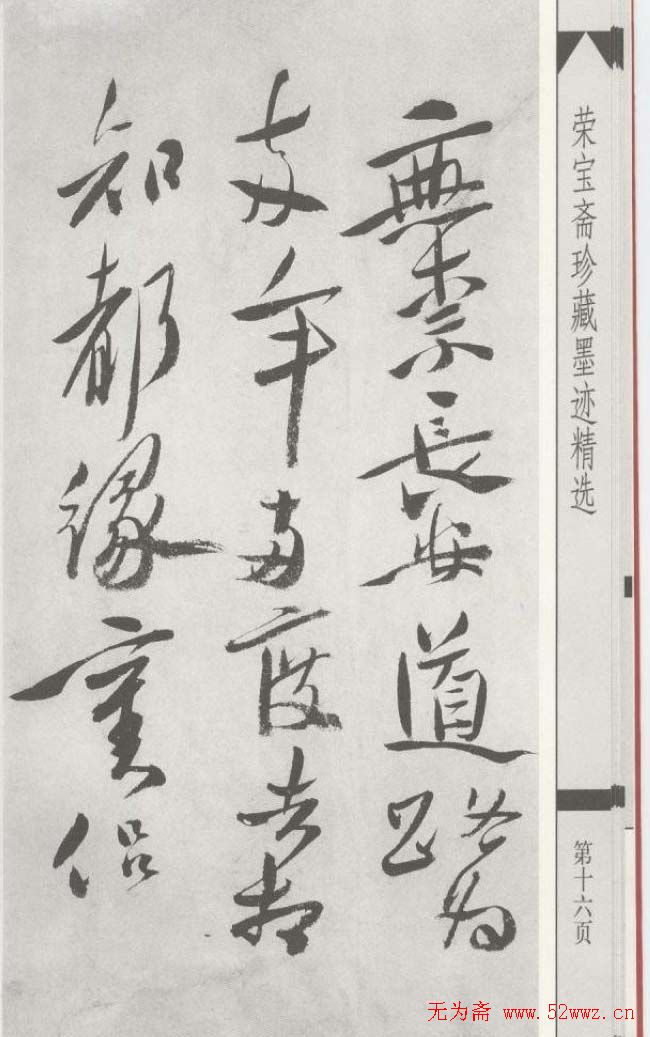 無柰長安道路为
年两度去相
知都緣侣
荣宝斋珍藏墨迹精选
第十六页
无为斋 www.52wwz.cn